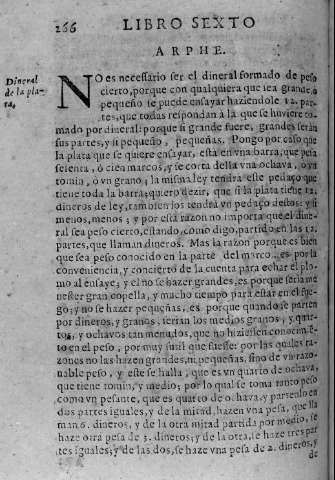 266 LIBRO SEXTO
ARPHE.
Dineral
de la pla-
ta.
NO es necessario ser el dineral formado de peso
cierto, porque con qualquiera que sea grande, o
pequeño se puede ensayar haziendole 12. par-
tes, que todas respondan à la que se huviere to-
mado por dineral: porque si grande fuere, grandes seràn
sus partes, y si pequeño, pequeñas. Pongo por caso que
la plata que se quiere ensayar, està en vna barra, que pesa
sesenta, ò cien marcos, y se corta della vna ochava, ò vn
tomin, ò vn grano; la misma ley tendrà este pedaço que
tiene toda la barra: quiero dezir, que si la plata tiene 12.
dineros de ley, tambien los tendrà vn pedaço destos: y si
menos, menos; y por esta razon no importa que el dine-
ral sea peso cierto, estando, como digo, partido en las 12.
partes, que llaman dineros. Mas la razon porque es bien
que sea peso conocido en la parte del marco, es por la
conveniencia, y concierto de la cuenta para echar el plo-
mo al ensaye; y el no se hazer grandes, es porque seria me-
nester gran copella, y mucho tiempo para estar en el fue-
go; y no se hazer pequeñas, es porque quando se parten
por dineros, y granos, serian los medios granos, y quar-
tos, y ochavos tan menudos, que no hiziessen conocimiē-
to en el peso, por muy sutil que fuesse: por las quales ra-
zones no las hazen grandes, ni pequeñas, sino de vn razo-
nable peso, y este se halla, que es vn quarto de ochava,
que tiene tomin, y medio; por lo qual se toma tanto peso
como vn pesante, que es quarto de ochava, y partenlo en
dos partes iguales, y de la mitad hazen vna pesa, que lla-
man 6. dineros, y de la otra mitad partida por medio, se
haze otra pesa de 3. dineros; y de la otra, se haze tres par-
tes iguales; y de las dos, se haze vna pesa de 2. dineros, y
de